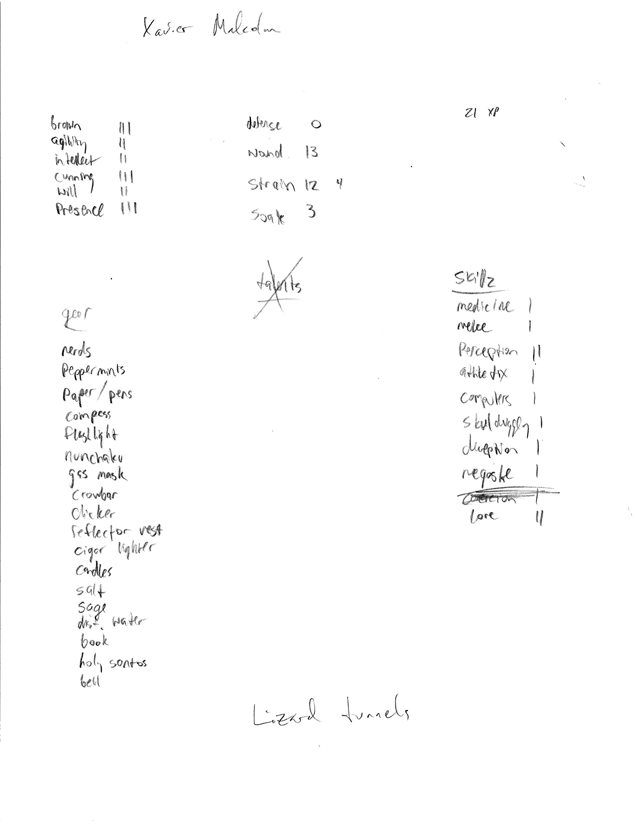 Xavier Malcolm
21 XP
brawn III
agility II
intellect II
cunning III
will II
Presence III
defense 0
wound 13
Strain 12 4
Soak 3
talents
gear
nerds
Peppermints
Paper/pens
compass
flashlight
nunchaku
gas mask
crowbar
clicker
reflector vest
cigar lighter
candles
salt
sage
water
book
holy
bell
Skillz
medicine I
melee I
Perception II
athletix I
computers I
skulduggery I
deception I
I
coercion I
Lore II
Lizard tunnels